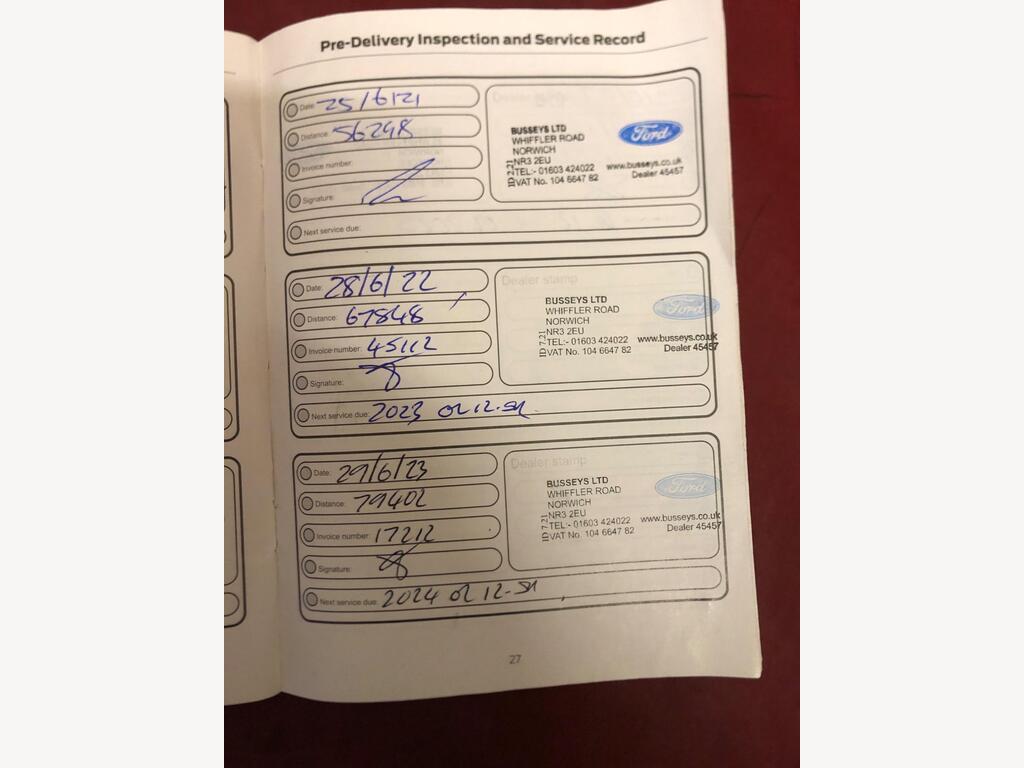 Pre-Delivery Inspection and Service Record
Date: 25/6/21
Distance: 56248
Invoice number:
Signature:
Next service due:
BUSSEYS LTD
WHIFFLER ROAD
NORWICH
NR3 2EU
TEL:- 01603 424022 www.busseys.co.uk
VAT No. 104 6647 82 Dealer 45457
Ford
Date: 28/6/22
Distance: 67848
Invoice number: 45112
Signature:
Next service due: 2023 or 12.5K
Dealer stamp
BUSSEYS LTD
WHIFFLER ROAD
NORWICH
NR3 2EU
TEL:- 01603 424022 www.busseys.co.uk
VAT No. 104 6647 82 Dealer 45457
ID 7.21
Ford
Date: 29/6/23
Distance: 79402
Invoice number: 17212
Signature:
Next service due: 2024 or 12.5K
Dealer stamp
BUSSEYS LTD
WHIFFLER ROAD
NORWICH
NR3 2EU
TEL:- 01603 424022 www.busseys.co.uk
VAT No. 104 6647 82 Dealer 45457
ID 7.21
Ford
27